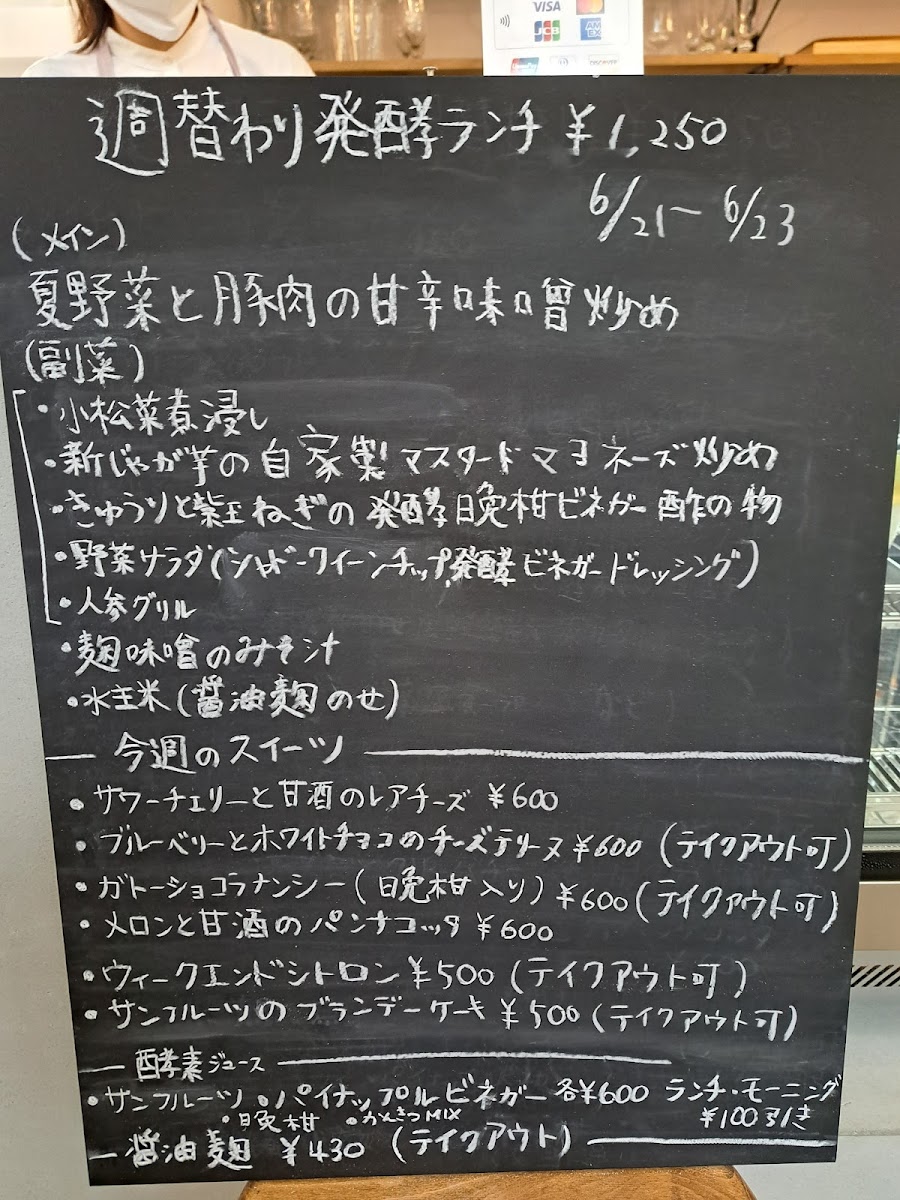 VISA
JCB
AMEX
DISCOVER
週替わり発酵ランチ ¥1,250
6/21〜6/23
(メイン)
夏野菜と豚肉の甘辛味噌炒め
(副菜)
・小松菜煮浸し
・新じゃが芋の自家製マスタードマヨネーズ炒め
・きゅうりと紫玉ねぎの発酵晩柑ビネガー酢の物
・野菜サラダ(シャドークイーンチップ,発酵ビネガードレッシング)
・人参グリル
・麹味噌のみそ汁
・水主米(醤油麹のせ)
今週のスイーツ
・サワーチェリーと甘酒のレアチーズ ¥600
・ブルーベリーとホワイトチョコのチーズテリーヌ ¥600 (テイクアウト可)
・ガトーショコラナンシー(晩柑入り) ¥600 (テイクアウト可)
・メロンと甘酒のパンナコッタ ¥600
・ウィークエンドシトロン ¥500 (テイクアウト可)
・サンフルーツのブランデーケーキ ¥500 (テイクアウト可)
酵素ジュース
・サンフルーツ ・パイナップルビネガー 各¥600 ランチ・モーニング
・晩柑 ・かんきつMIX ¥100引き
醤油麹 ¥430 (テイクアウト)